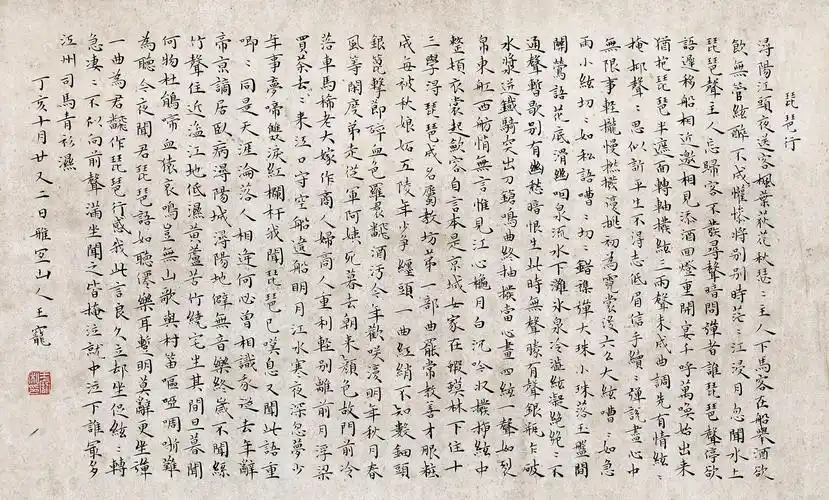 琵琶行
潯陽江頭夜送客楓葉荻花秋瑟〻主人下馬客在船舉酒欲
飲無管絃醉不成懽慘將別別時茫〻江浸月忽聞水上
琵琶聲主人忘歸客不發尋聲暗問彈者誰琵琶聲停欲
語遲移船相近邀相見添酒回燈重開宴千呼萬喚始出來
猶抱琵琶半遮面轉軸撥絃三兩聲未成曲調先有情絃〻
掩抑聲〻思似訴平生不得志低眉信手續〻彈說盡心中
無限事輕攏慢撚撥復挑初為霓裳後六么大絃嘈〻如急
雨小絃切〻如私語嘈〻切〻錯雜彈大珠小珠落玉盤間
關鶯語花底滑幽咽泉流水下灘水泉冷澀絃凝絕〻不
通聲暫歇別有幽愁暗恨生此時無聲勝有聲銀瓶乍破
水漿迸鐵騎突出刀鎗鳴曲終抽撥當心畫四絃一聲如裂
帛東舡西舫悄無言惟見江心秋月白沉吟收撥插絃中
整頓衣裳起斂容自言本是京城女家在蝦蟆林下住十
三學得琵琶成名屬教坊第一部曲罷常教善才服粧
成每被秋娘妬五陵年少爭纏頭一曲紅綃不知數鈿頭
銀篦擊節碎血色羅裙翻酒污今年歡笑復明年秋月春
風等閑度弟走從軍阿姨死暮去朝來顏色故門前冷
落車馬稀老大嫁作商人婦商人重利輕別離前月浮梁
買茶去〻來江口守空船遶船明月江水寒夜深忽夢少
年事夢啼雙淚紅欄杆我聞琵琶已嘆息又聞此語重
唧〻同是天涯淪落人相逢何必曾相識我從去年辭
帝京謫居臥病潯陽城潯陽地僻無音樂終歲不聞絲
竹聲住近湓江地低濕黃蘆苦竹繞宅生其間旦暮聞
何物杜鵑啼血猿哀鳴豈無山歌與村笛嘔啞啁哳難
為聽今夜聞君琵琶語如聽僊樂耳暫明莫辭更坐彈
一曲為君翻作琵琶行感我此言良久立却坐促絃〻轉
急凄〻不似向前聲滿坐聞之皆掩泣就中泣下誰最多
江州司馬青衫濕
丁亥十月廿又二日雅宜山人王寵